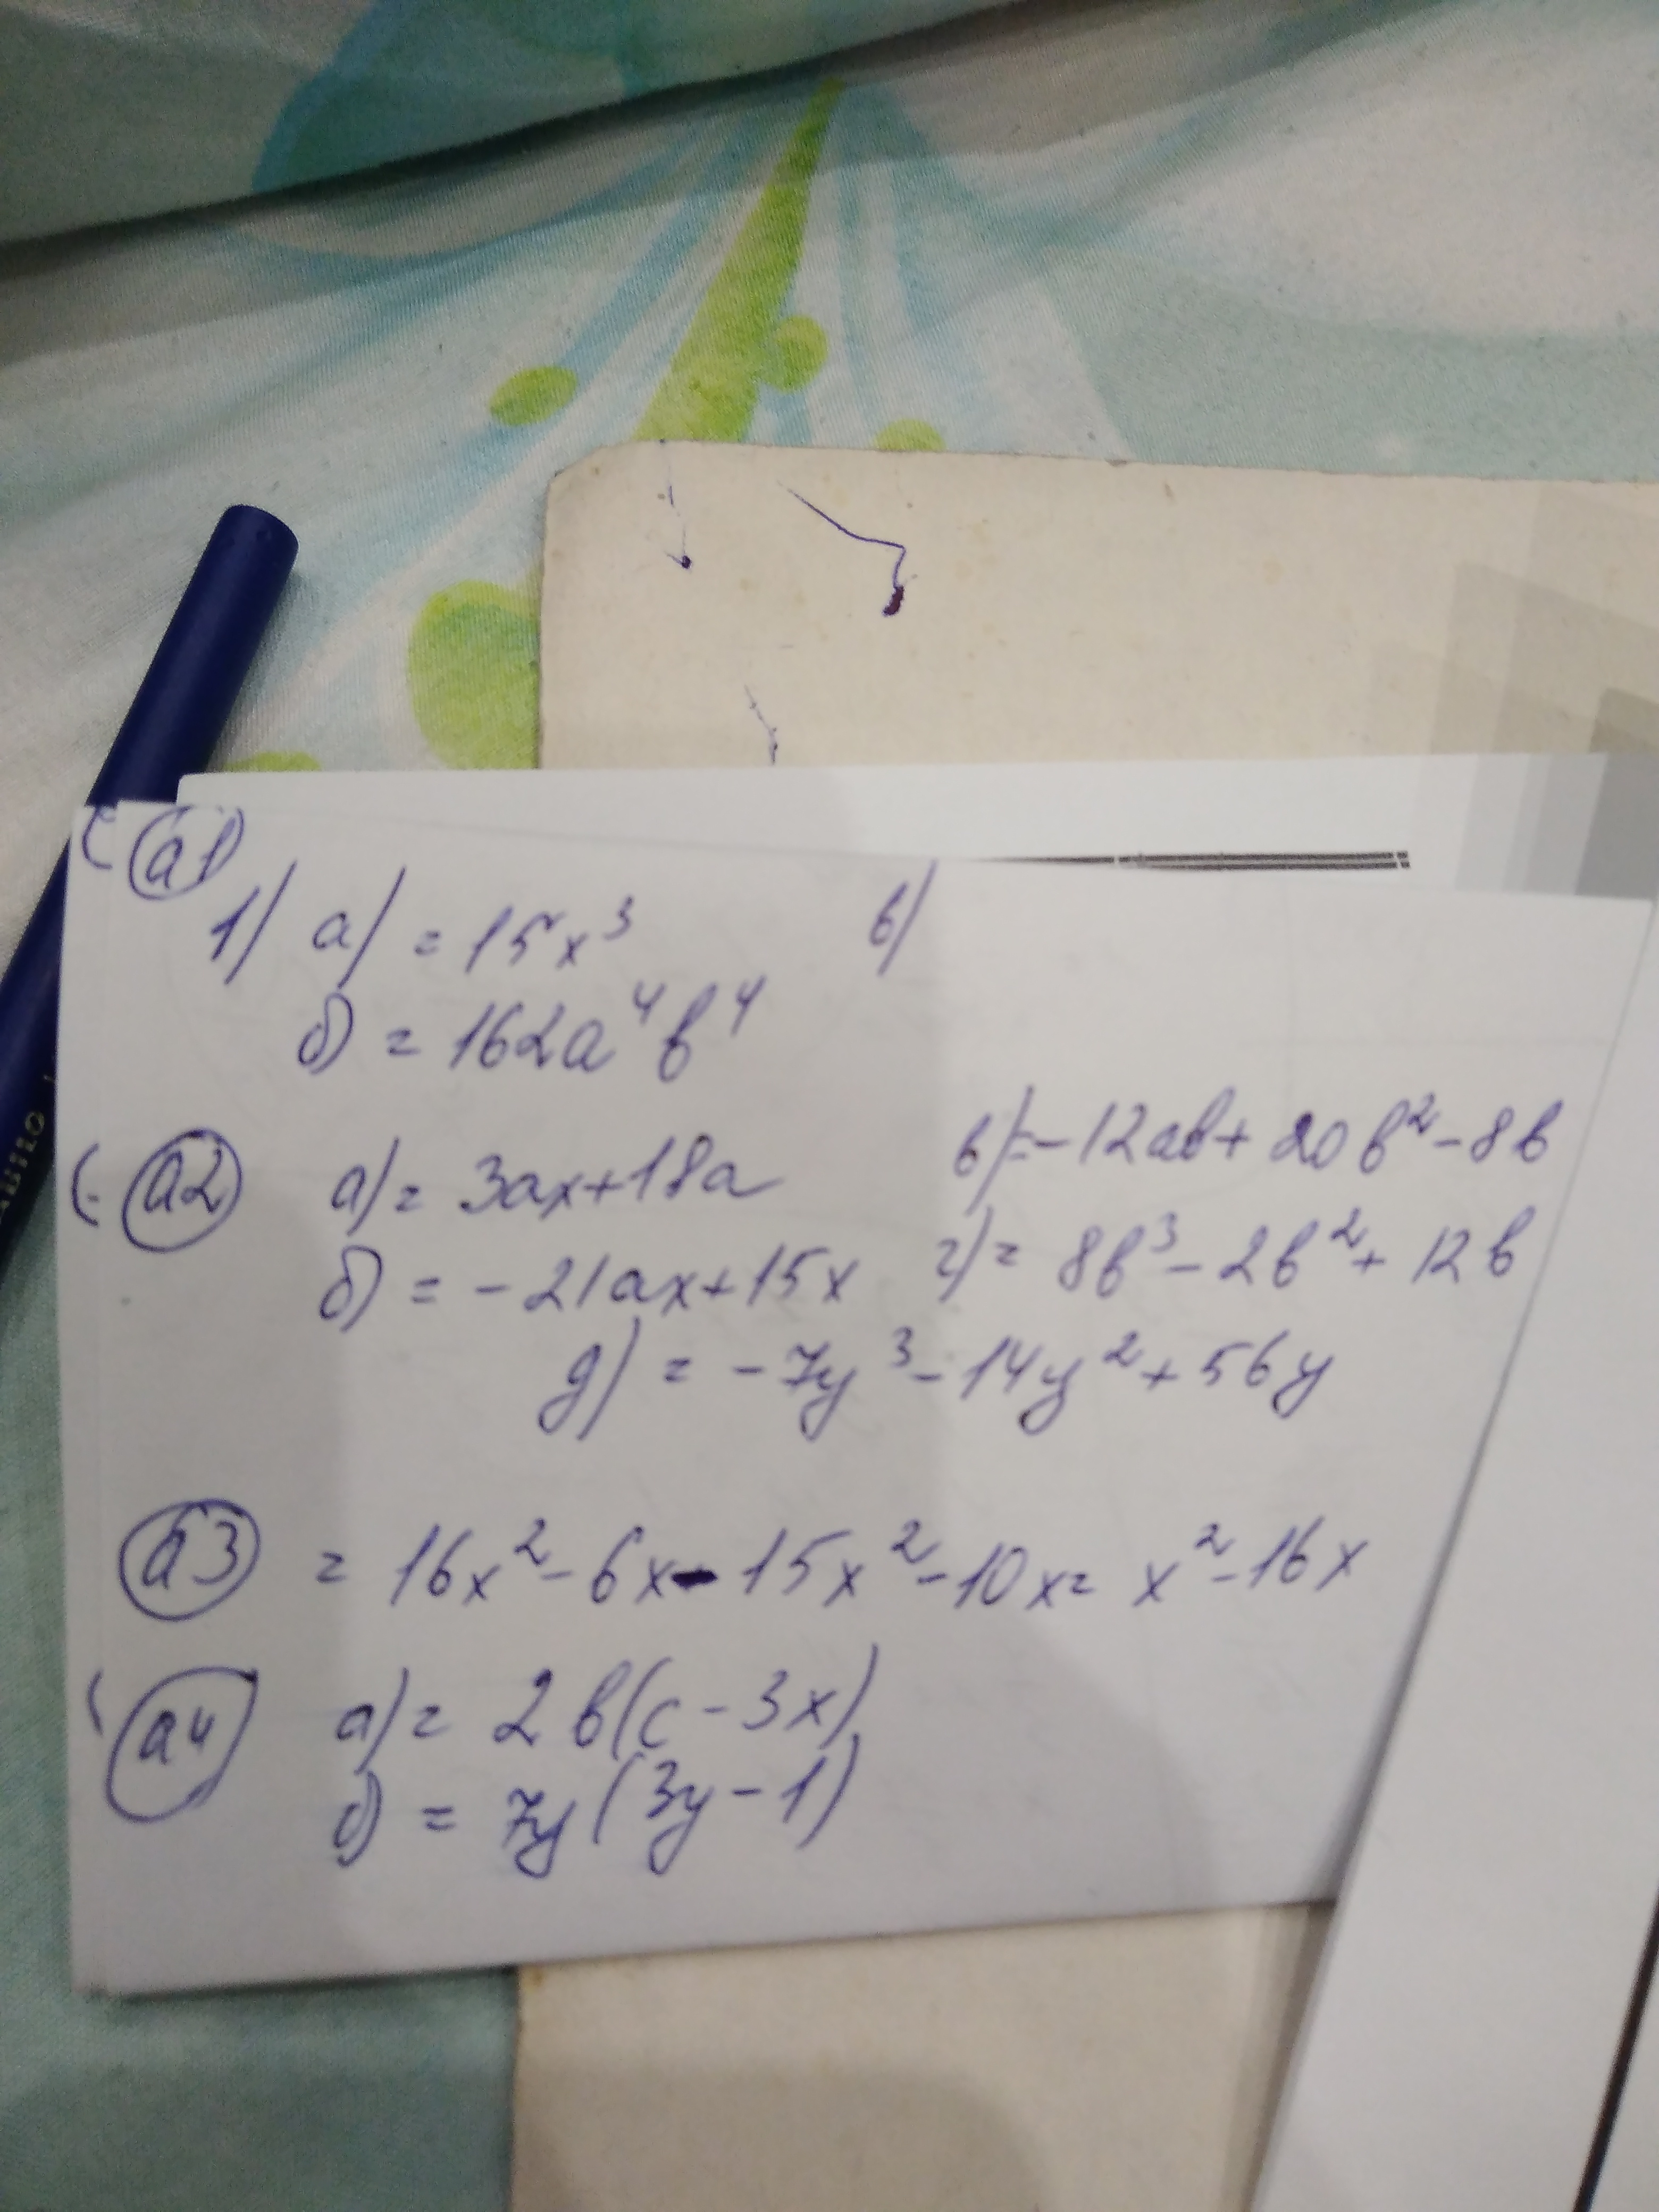 а1
1) а) = 15x³ в)
б) = 162a⁴b⁴
а2 а) = 3ax+18a в)=-12ab+20b²-8b
б) = -21ax+15x г)= 8b³-2b²+12b
д) = -7y³-14y²+56y
а3 = 16x²-6x-15x²-10x= x²-16x
а4 а)= 2b(c-3x)
б) = 7y(3y-1)